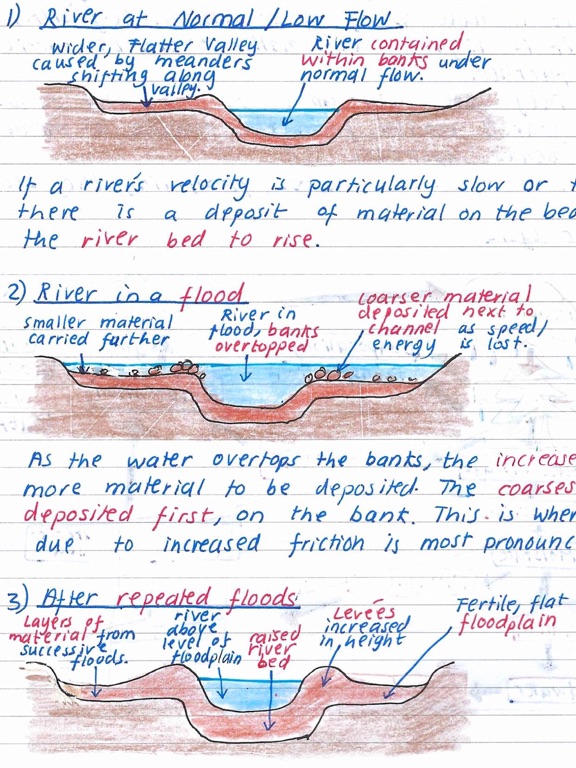 1) River at Normal/Low Flow.
Wider, Flatter Valley
caused by meanders
shifting along
valley.
River contained
within banks under
normal flow.
If a river's velocity is particularly slow or
there is a deposit of material on the bed
the river bed to rise.
2) River in a flood
smaller material
carried further
River in
flood, banks
overtopped
Coarser material
deposited next to
channel as speed/
energy is lost.
As the water overtops the banks, the increase
more material to be deposited. The coarses
deposited first, on the bank. This is wher
due to increased friction is most pronounc
3) After repeated floods
Layers of
material from
successive
floods.
river
above
level of
floodplain
raised
river
bed
Leveés
increased
in height
Fertile, flat
floodplain